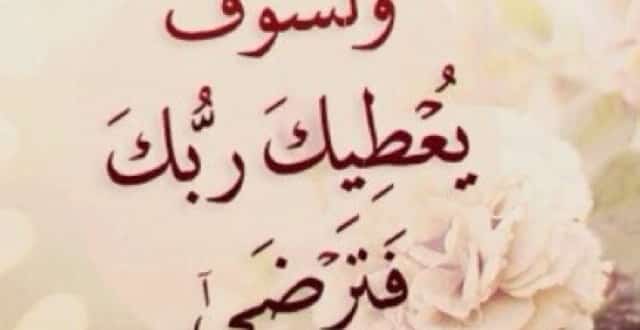 ولسوف
يُعْطِيكَ رَبُّكَ
فَتَرْضَىٰٓ